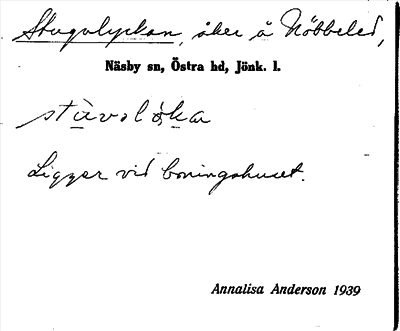 Stugulyckan, åker å Nöbbeled,
Näsby sn, Östra hd, Jönk. l.
stùvolö́ka
Ligger vid boningshuset.
Annalisa Anderson 1939